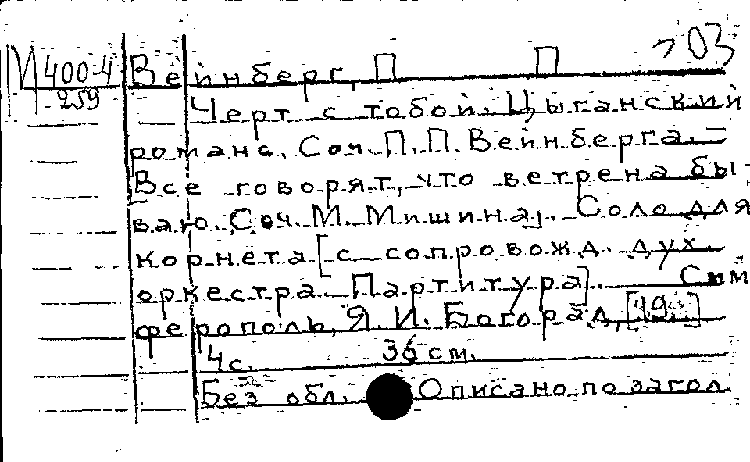 М 400-4 Вейнберг, П П 703
259 Черт с тобой. Цыганский
романс. Соч. П. П. Вейнберга. —
Все говорят, что ветрена бы-
ваю. Соч. М. Мишина]. Соло для
корнета [с сопровожд. дух.
оркестра. Партитура]. Сим
ферополь, Я. И. Богорад,
4 с. 36 см.
Без обл. Описано по загол.